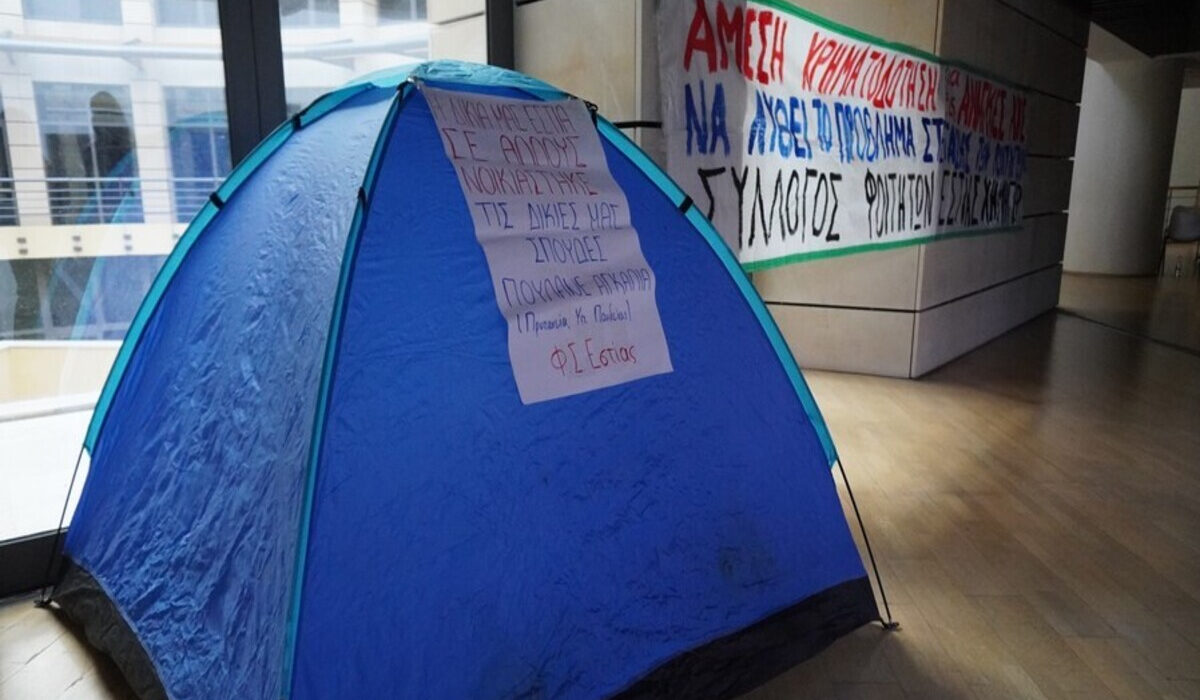 Η ΔΙΚΙΑ ΜΑΣ ΕΣΤΙΑ
ΣΕ ΑΛΛΟΥΣ
ΝΟΙΚΙΑΣΤΗΚΕ
ΤΙΣ ΔΙΚΙΕΣ ΜΑΣ
ΣΠΟΥΔΕΣ
ΠΟΥΛΑΝΕ ΑΓΚΑΛΙΑ
(Πρυτανεία, Υπ. Παιδείας)
Φ.Σ Εστίας
ΑΜΕΣΗ ΧΡΗΜΑΤΟΔΟΤΗΣΗ
ΝΑ ΛΥΘΕΙ ΤΟ ΠΡΟΒΛΗΜΑ ΣΤΕΓΑΣΗΣ ΤΩΝ ΦΟΙΤΗΤΩΝ
ΣΥΛΛΟΓΟΣ ΦΟΙΤΗΤΩΝ ΕΣΤΙΑΣ